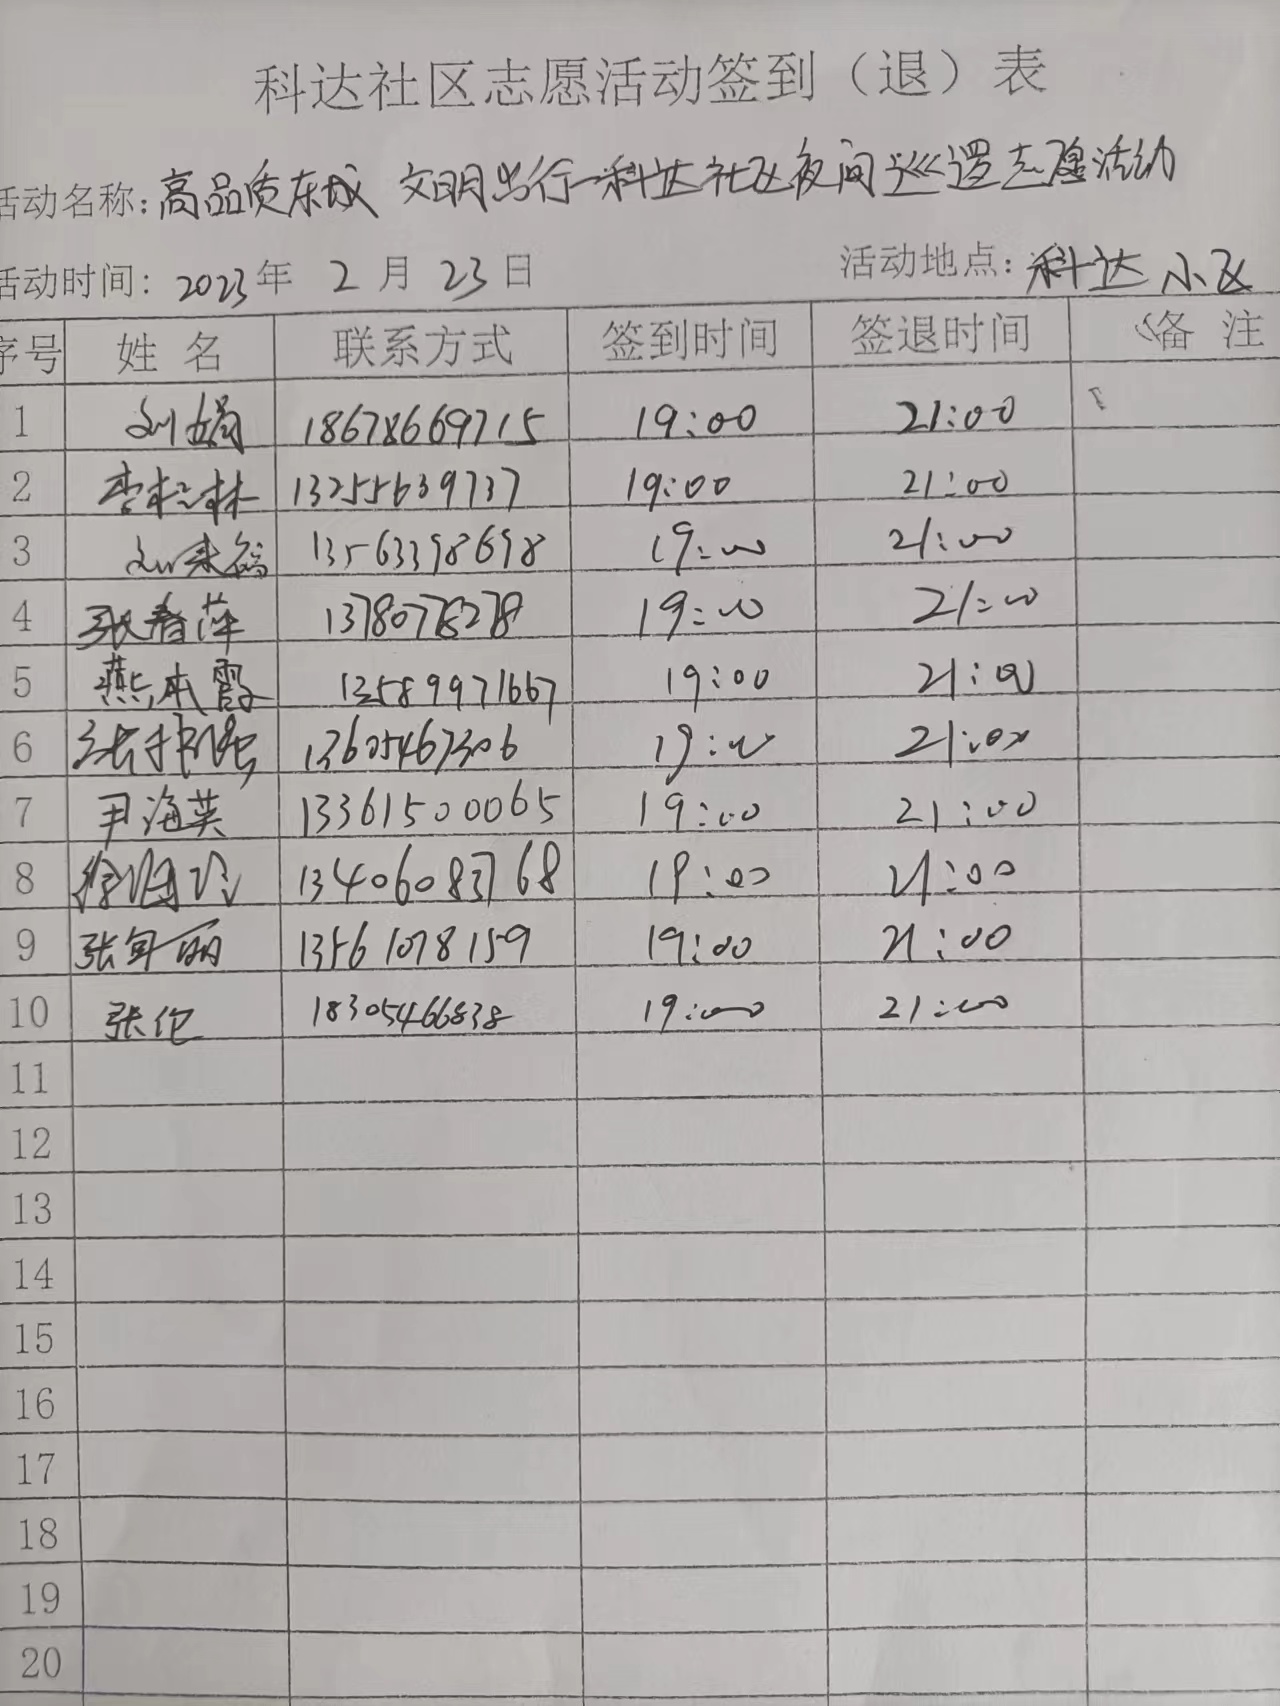 科达社区志愿活动签到（退）表
活动名称：高品质东城 文明出行—科达社区夜间巡逻志愿活动
活动时间：2023年 2 月 23 日 活动地点：科达小区
序号 姓 名 联系方式 签到时间 签退时间 备 注
1 刘娟 18678669715 19:00 21:00
2 李桂林 13255639737 19:00 21:00
3 13563398698 19:00 21:00
4 张春萍 13780778278 19:00 21:00
5 燕本霞 13589971667 19:00 21:00
6 13605467306 19:00 21:00
7 尹海英 13361500065 19:00 21:00
8 13406083768 19:00 21:00
9 张军丽 13561078159 19:00 21:00
10 张伦 18305466838 19:00 21:00
11
12
13
14
15
16
17
18
19
20